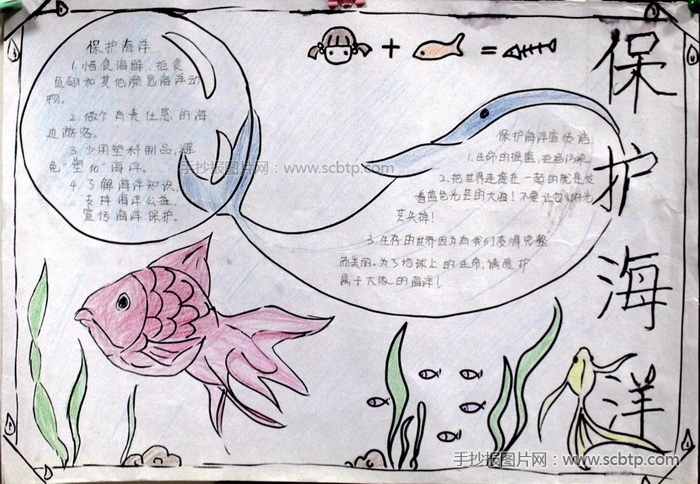 保护海洋
保护海洋
1.惜食海鲜,拒食
鱼翅和其他濒危海洋动
物。
2.做个有责任感的海
边游客。
3.少用塑料制品,避
免“塑化”海洋。
4.了解海洋知识,
支持海洋公益,
宣传海洋保护。
+ =
保护海洋宣传语
1.生命的摇篮,拒绝污染。
2.把世界连接在一起的就是
蓝色光芒的大海!不要让
3.生存的世界因为
而美丽。为了地球上的生命,请爱护
属于大家的海洋!
手抄报图片网:www.scbtp.com
手抄报图片网:www.scbtp.com